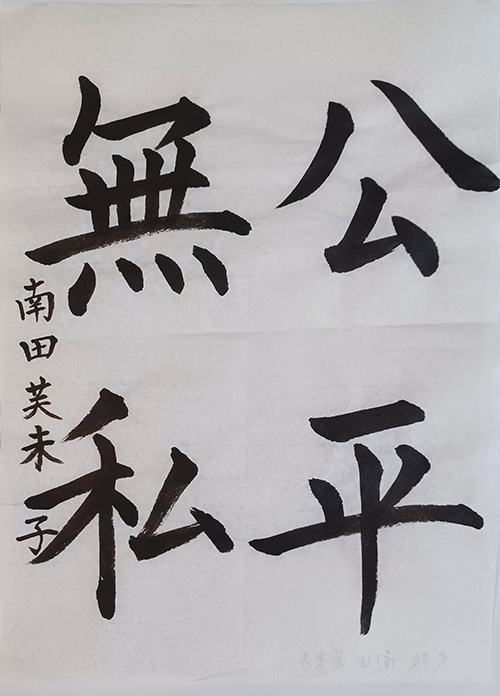 公平
無私
南田芙未子